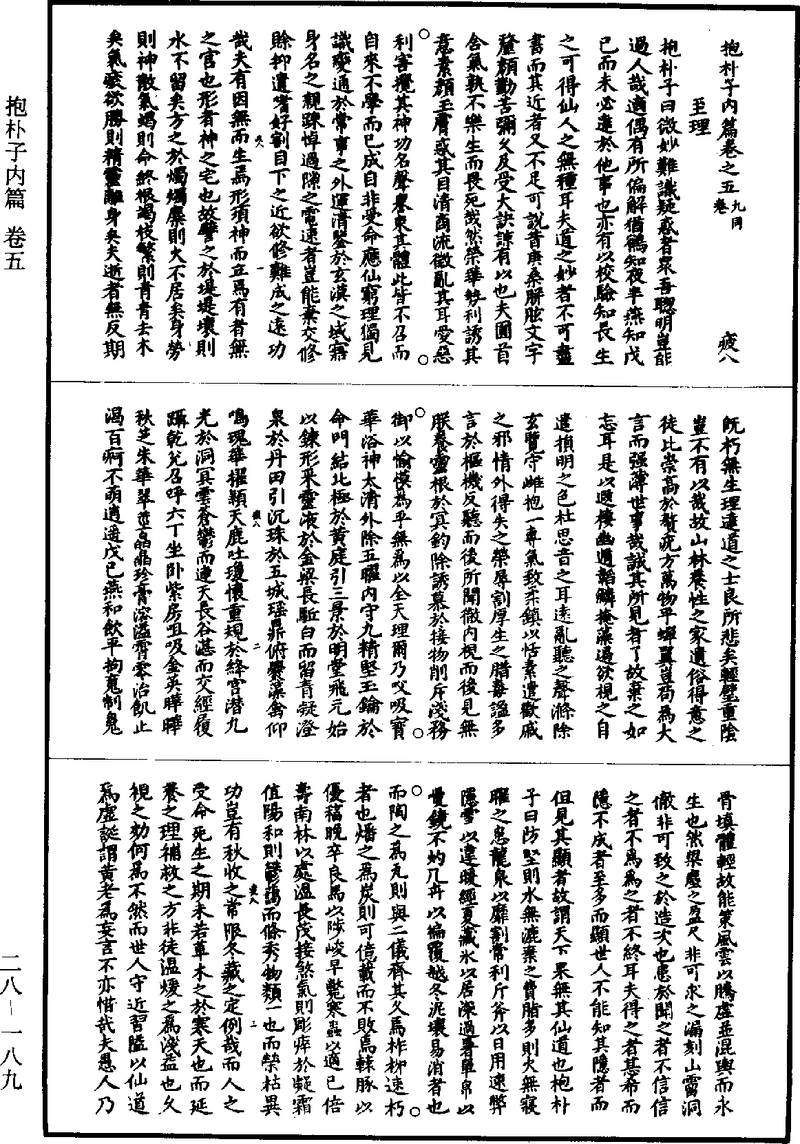 抱朴子内篇 卷五
二八－一八九
抱朴子内篇卷之五 九同卷 疲八
至理
抱朴子曰微妙難識疑惑者衆吾聰明豈能
過人哉適偶有所偏解猶鶴知夜半燕知戊
已而未必達於他事也亦有以校驗知長生
之可得仙人之無種耳夫道之妙者不可盡
書而其近者又不足可說昔庚桑胼胝文子
釐顔勤苦彌久及受大訣諒有以也夫圓首
含氣孰不樂生而畏死哉然榮華勢利誘其
意素顔玉膚惑其目清商流徵亂其耳愛惡
利害攪其神功名聲譽束其體此皆不召而
自來不學而已成自非受命應仙窮理獨見
識變通於常事之外運清鑒於玄漠之域寤
身名之親踈悼過隙之電速者豈能棄交修
賒抑遺嗜好割目下之近欲修難成之遠功
哉夫有因無而生焉形須神而立焉有者無
之宮也形者神之宅也故譬之於堤堤壞則
水不留矣方之於燭燭糜則火不居矣身勞
則神散氣竭則命終根竭枝繁則青青去木
矣氣疲欲勝則精靈離身矣夫逝者無反期
既朽無生理達道之士良所悲矣輕璧重陰
豈不有以哉故山林養性之家遺俗得意之
徒比崇高於贅疣方萬物乎蟬翼豈苟為大
言而强薄世事哉誠其所見者了故棄之如
忘耳是以遐棲幽遁韜鱗掩藻遏欲視之目
遣損明之色杜思音之耳遠亂聽之聲滌除
玄覽守雌抱一專氣致柔鎮以恬素遣歡戚
之邪情外得失之榮辱割厚生之腊毒謐多
言於樞機反聽而後所聞徹内視而後見無
朕養靈根於冥鈞除誘慕於接物削斥淺務
御以愉慔為乎無為以全天理爾乃㕮吸寳
華浴神太清外除五曜内守九精堅玉鑰於
命門結北極於黄庭引三景於明堂飛元始
以鍊形采靈液於金梁長驅白而留青凝澄
泉於丹田引沉珠於五城瑶鼎俯爨藻禽仰
鳴瑰華擢穎天鹿吐瓊懷重規於絳宫潛九
光於洞冥雲蒼鬱而連天長谷湛而交經履
躡乾兌召呼六丁坐卧紫房咀吸金英曄曄
秋芝朱華翠莖皛皛珍膏溶溢霄零治飢止
渴百痾不萌逍遥戊巳燕和飲平拘魂制魄
骨填體輕故能策風雲以騰虚並混輿而永
生也然梁塵之盈尺非可求之漏刻山霤洞
徹非可致之於造次也患於聞之者不信信
之者不為為之者不終耳夫得之者甚希而
隱不成者至多而顯世人不能知其隱者而
但見其顯者故謂天下果無其仙道也抱朴
子曰防堅則水無漉棄之費脂多則火無寢
曜之患龍泉以靡割常利斤斧以日用速弊
隱雪以違暖經夏藏氷以居深過暑單帛以
幔鏡不灼凡卉以偏覆越冬泥壤易消者也
而陶之為瓦則與二儀齊其久焉柞柳速朽
者也燔之為炭則可億載而不敗焉轅豚以
優稿晚卒良馬以陟峻早斃寒蟲以適己倍
壽南林以處温長茂接煞氣則彫瘁於凝霜
值陽和則鬱藹而條秀物類一也而榮枯異
功豈有秋收之常限冬藏之定例哉而人之
受命死生之期未若草木之於寒天也而延
養之理補救之方非徒温煖之為淺益也久
視之効何為不然而世人守近習隘以仙道
為虚誕謂黄老為妄言不亦惜哉夫愚人乃